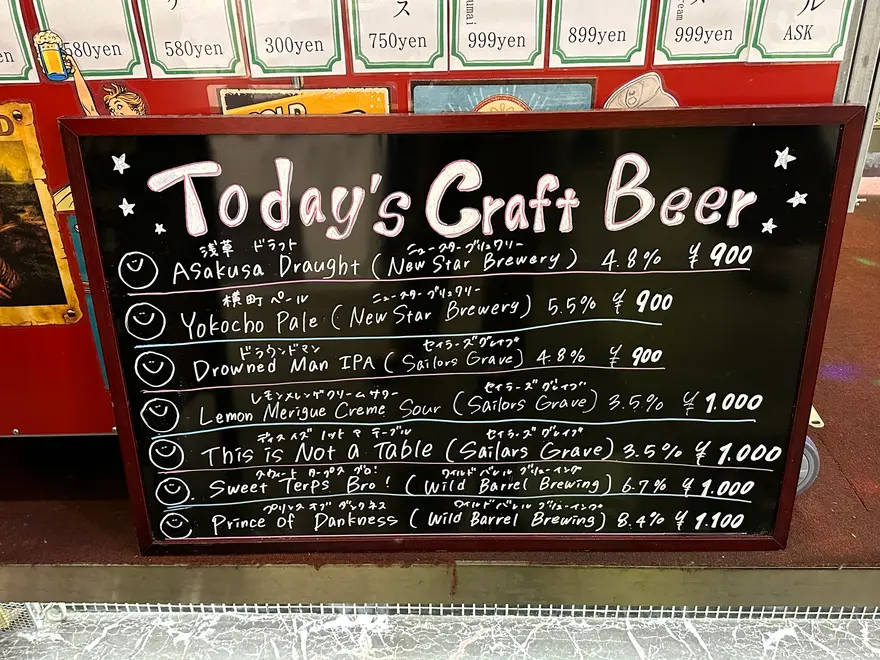 580yen
580yen
300yen
750yen
999yen
899yen
999yen
ASK
Today's Craft Beer
浅草 ドラフト ニュースターブリュワリー
Asakusa Draught (New Star Brewery) 4.8% ¥900
横町ペール ニュースターブリュワリー
Yokocho Pale (New Star Brewery) 5.5% ¥900
ドラウンドマン セイラーズグレイブ
Drowned Man IPA (Sailors Grave) 4.8% ¥900
レモンメレンゲクリームサワー セイラーズグレイブ
Lemon Merigue Creme Sour (Sailors Grave) 3.5% ¥1.000
ディスイズノットアテーブル セイラーズグレイブ
This is Not a Table (Sailars Grave) 3.5% ¥1.000
スウィート タープス ブロ! ワイルドバレルブリューイング
Sweet Terps Bro! (Wild Barrel Brewing) 6.7% ¥1.000
プリンスオブダンクネス ワイルドバレルブリューイング
Prince of Dankness (Wild Barrel Brewing) 8.4% ¥1.100